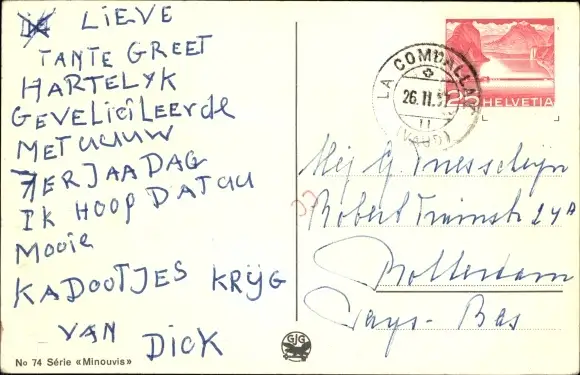 LIEVE
TANTE GREET
HARTELYK
GEVELICILEERDE
MET UUUUW
7ERJAADAG
IK HOOP DAT UU
MOOIE
KADOOTJES KRYG
VAN DICK
No 74 Série «Minouvis»
GJG
LA COMBALLAZ
26.11.57
(VAUD)
HELVETIA
Mej G.
Robert
Rotterdam
Pays-Bas